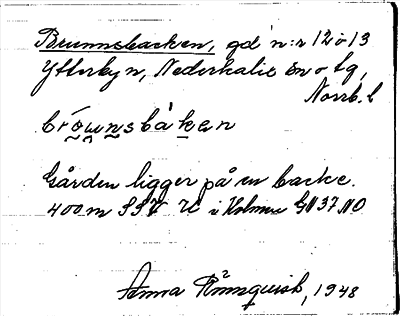 Brunnsbacken, gd n:r 12 o 13
Ytterbyn, Nederkalix sn o tg,
Norrb. l
brównsbàken
Gården ligger på en backe.
400 m SSV K i Kalix
Anna Rönnquist, 1948